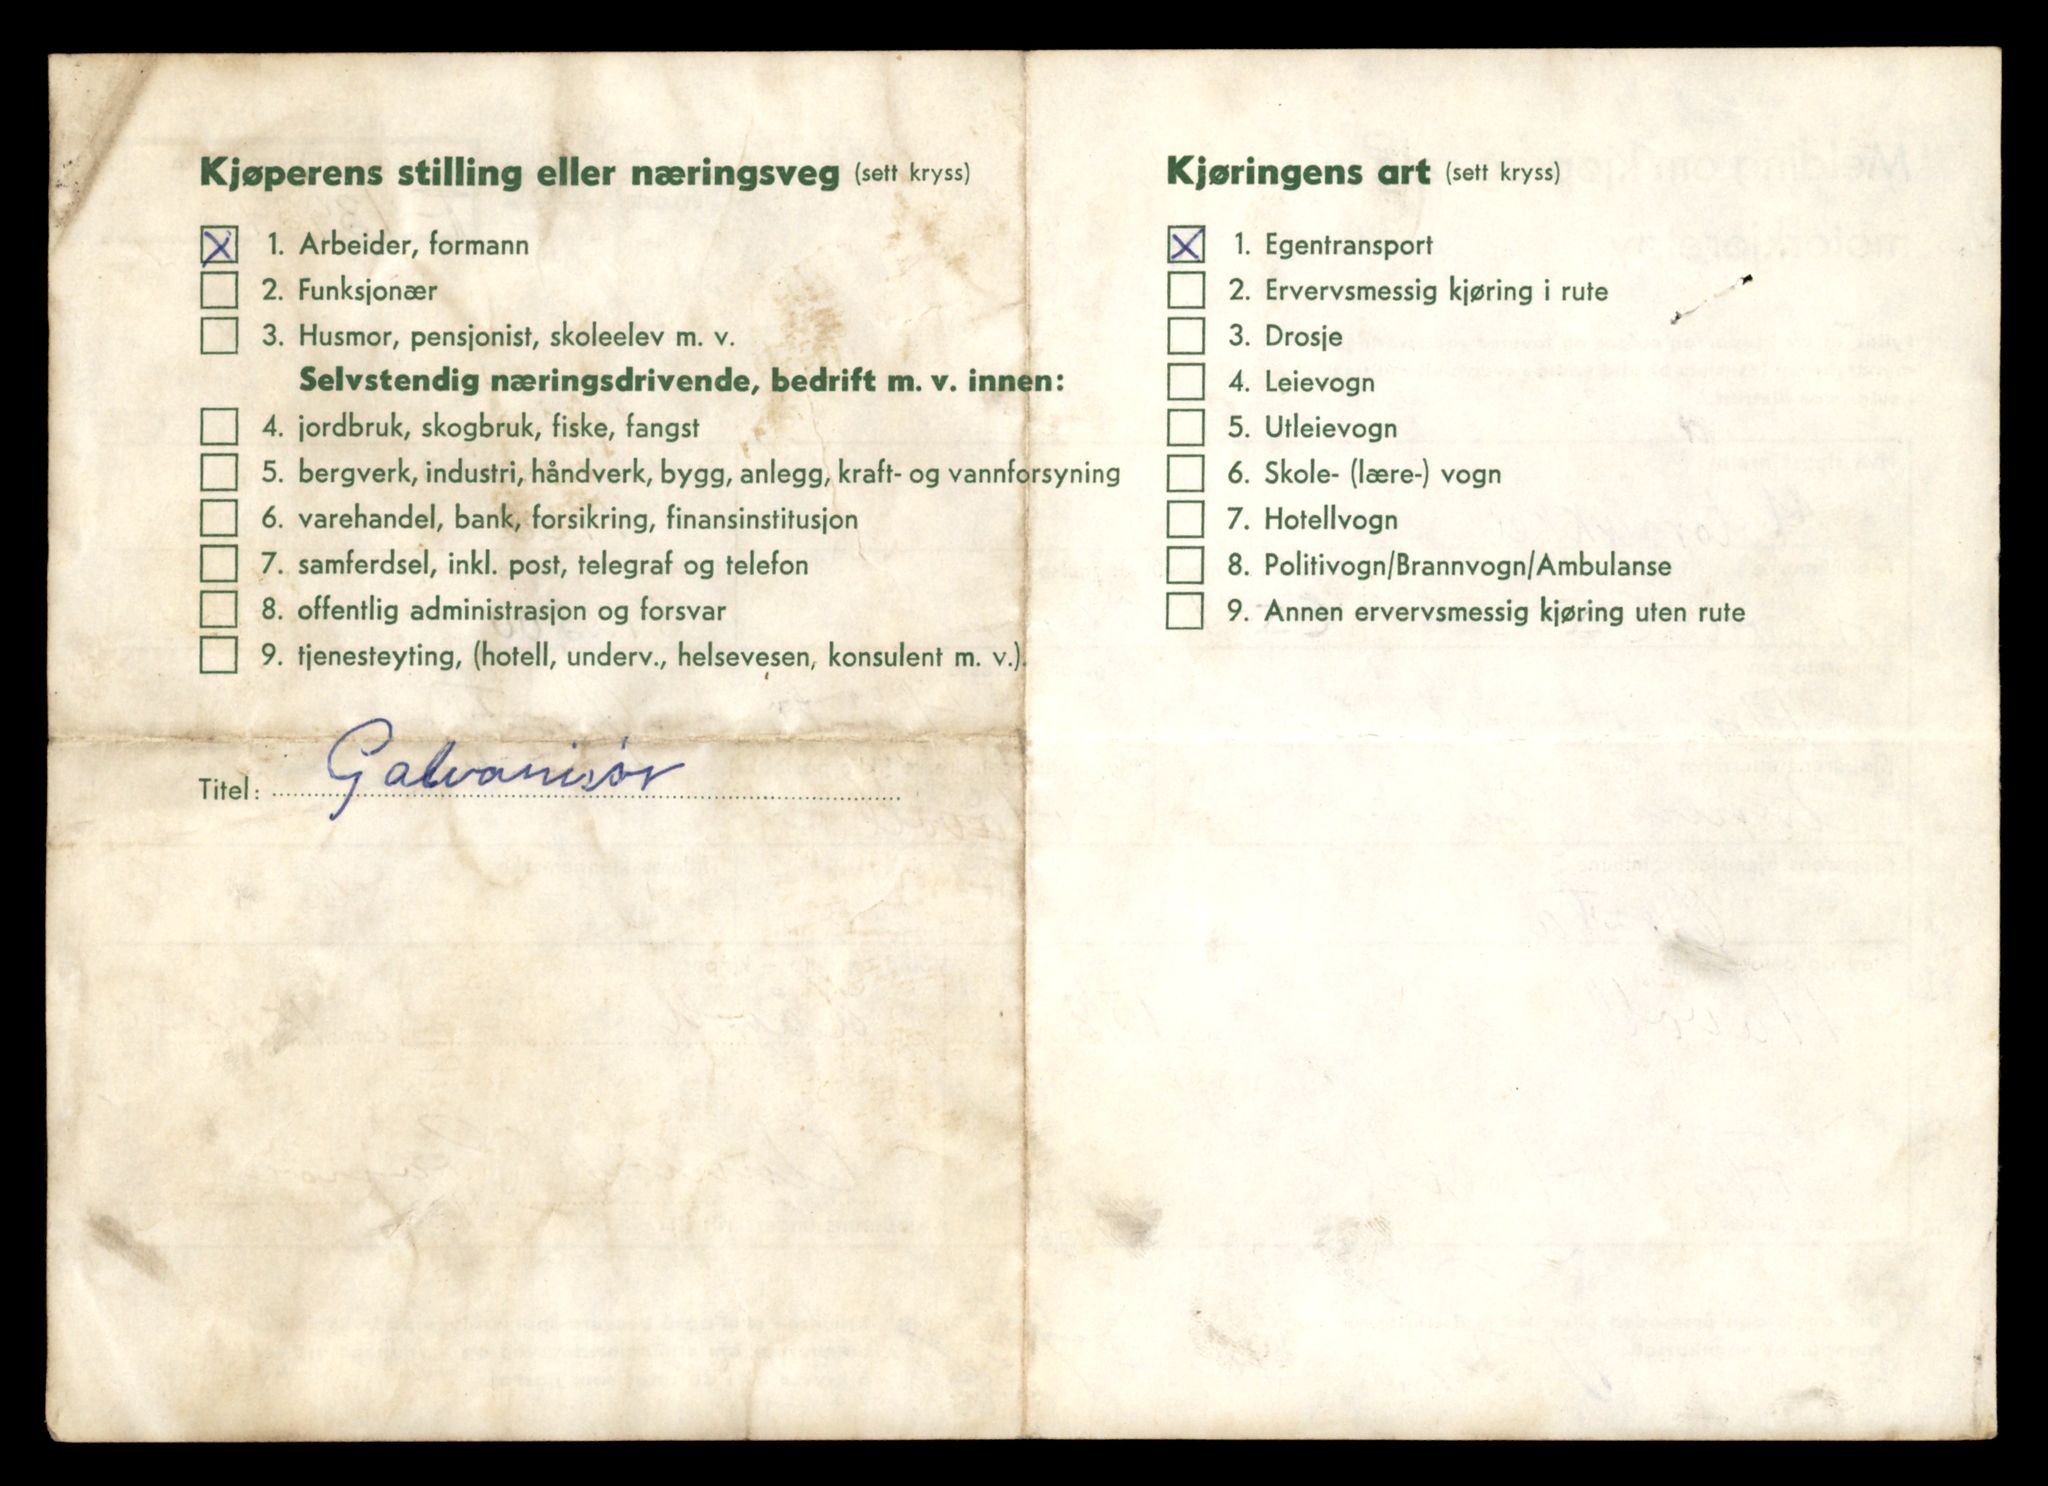 Kjøperens stilling eller næringsveg (sett kryss)
☒ 1. Arbeider, formann
☐ 2. Funksjonær
☐ 3. Husmor, pensjonist, skoleelev m. v.
Selvstendig næringsdrivende, bedrift m. v. innen:
☐ 4. jordbruk, skogbruk, fiske, fangst
☐ 5. bergverk, industri, håndverk, bygg, anlegg, kraft- og vannforsyning
☐ 6. varehandel, bank, forsikring, finansinstitusjon
☐ 7. samferdsel, inkl. post, telegraf og telefon
☐ 8. offentlig administrasjon og forsvar
☐ 9. tjenesteyting, (hotell, underv., helsevesen, konsulent m. v.).
Titel: Galvanisør
Kjøringens art (sett kryss)
☒ 1. Egentransport
☐ 2. Ervervsmessig kjøring i rute
☐ 3. Drosje
☐ 4. Leievogn
☐ 5. Utleievogn
☐ 6. Skole- (lære-) vogn
☐ 7. Hotellvogn
☐ 8. Politivogn/Brannvogn/Ambulanse
☐ 9. Annen ervervsmessig kjøring uten rute